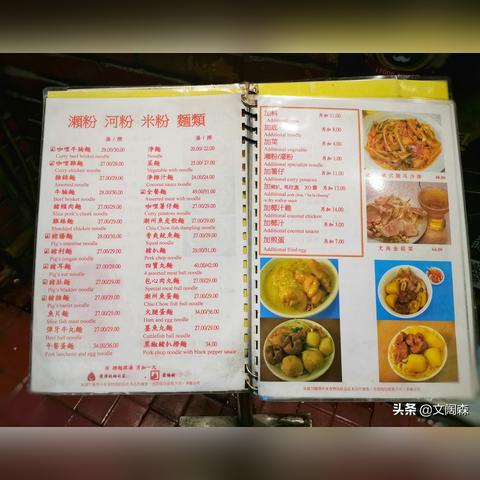 瀨粉 河粉 米粉 麵類
湯 / 撈
咖喱牛腩麵 28.00/30.00
Curry beef brisket noodle
咖喱雞麵 27.00/29.00
Curry chicken noodle
Assorted noodle
牛腩麵 28.00/30.00
Beef brisket noodle
豬頸肉麵 27.00/29.00
Slice pork's cheek noodle
雞絲麵 27.00/29.00
Shredded chicken noodle
豬腸麵 28.00/30.00
Pig's intestine noodle
豬脷麵 27.00/29.00
Pig's tongue noodle
豬耳麵 27.00/29.00
Pig's ear noodle
豬肚麵 27.00/29.00
Pig's bladder noodle
27.00/29.00
魚片麵 27.00/29.00
Slice fish meat noodle
彈牙牛丸麵 27.00/29.00
Beef ball noodle
午餐蛋麵 34.00/36.00
Pork luncheon and egg noodle
湯 / 撈
淨麵 20.00/22.00
Noodle
菜麵 25.00/27.00
Vegetable with noodle
淨椰汁麵 23.00/24.00
Coconut sauce noodle
全餐麵 49.00/51.00
Assorted meat with noodle
咖喱薯仔麵 27.00/29.00
Curry potatoes noodle
潮州魚皮餃麵 27.00/29.00
Chiu Chow fish dumpling noodle
香爽魷魚麵 27.00/29.00
Squid noodle
豬扒麵 29.00/31.00
Pork chop noodle
四寶丸麵 27.00/29.00
4 assorted meat ball noodle
包心肉丸麵 27.00/29.00
Special meat ball noodle
潮州魚蛋麵 27.00/29.00
Chiu Chow fish ball noodle
火腿蛋麵 34.00/36.00
Ham and egg noodle
墨魚丸麵 27.00/29.00
Cuttlefish ball noodle
黑椒豬扒撈麵 34.00
Pork chop noodle with black pepper sauce
加料 另加 11.00
加底 另加 8.00
Additional noodle
加菜 另加 4.00
Additional vegetable
瀨粉/濑粉 另加 1.00
Additional specialize noodle
加薯仔 另加 11.00
Additional curry potatoes
另加 11.00
加椰汁雞 另加 14.00
Additional coconut chicken
加椰汁 另加 3.00
Additional coconut sauces
加煎蛋 另加 7.00
Additional fried egg
头条 @文阔森